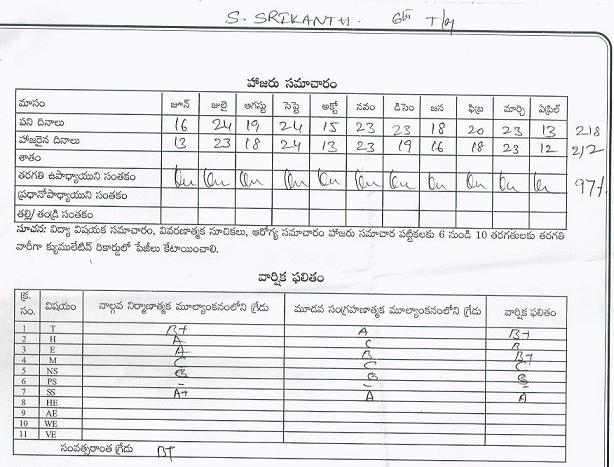 S. SRIKANTH. 6th T/M
హాజరు సమాచారం
మాసం జూన్ జులై ఆగస్టు సెప్టె అక్టో నవం డిసెం జన ఫిబ్ర మార్చి ఏప్రిల్
పని దినాలు 16 24 19 24 15 23 23 18 20 23 13 218
హాజరైన దినాలు 13 23 18 24 13 23 19 16 18 23 12 212
శాతం
తరగతి ఉపాధ్యాయుని సంతకం 97%
ప్రధానోపాధ్యాయుని సంతకం
తల్లి/ తండ్రి సంతకం
సూచన: విద్యా విషయక సమాచారం, వివరణాత్మక సూచికలు, ఆరోగ్య సమాచారం హాజరు సమాచార పట్టికలకు 6 నుండి 10 తరగతులకు తరగతి
వారీగా క్యుములేటివ్ రికార్డులో పేజీలు కేటాయించాలి.
వార్షిక ఫలితం
క్ర. సం. విషయం నాల్గవ నిర్మాణాత్మక మూల్యాంకనంలోని గ్రేడు మూడవ సంగ్రహణాత్మక మూల్యాంకనంలోని గ్రేడు వార్షిక ఫలితం
1 T B+ A B+
2 H A C B
3 E A B B+
4 M C C C
5 NS B B B
6 PS - - -
7 SS A+ A A
8 HE
9 AE
10 WE
11 VE
సంవత్సరాంత గ్రేడు B+